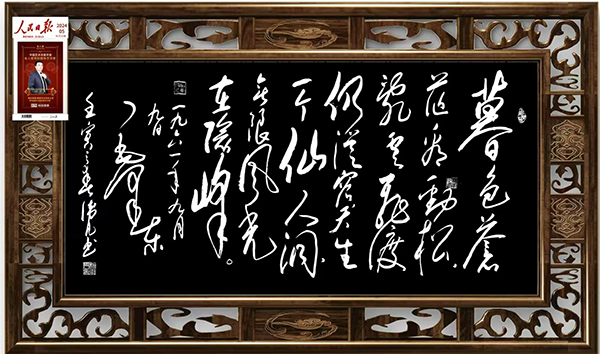 人民日报
2024
05
暮色蒼
茫看勁松
亂雲飛渡
仍從容天生
一个仙人洞
無限風光
在險峰。
一九六一年九月
九日
毛澤東
壬寅之春
书